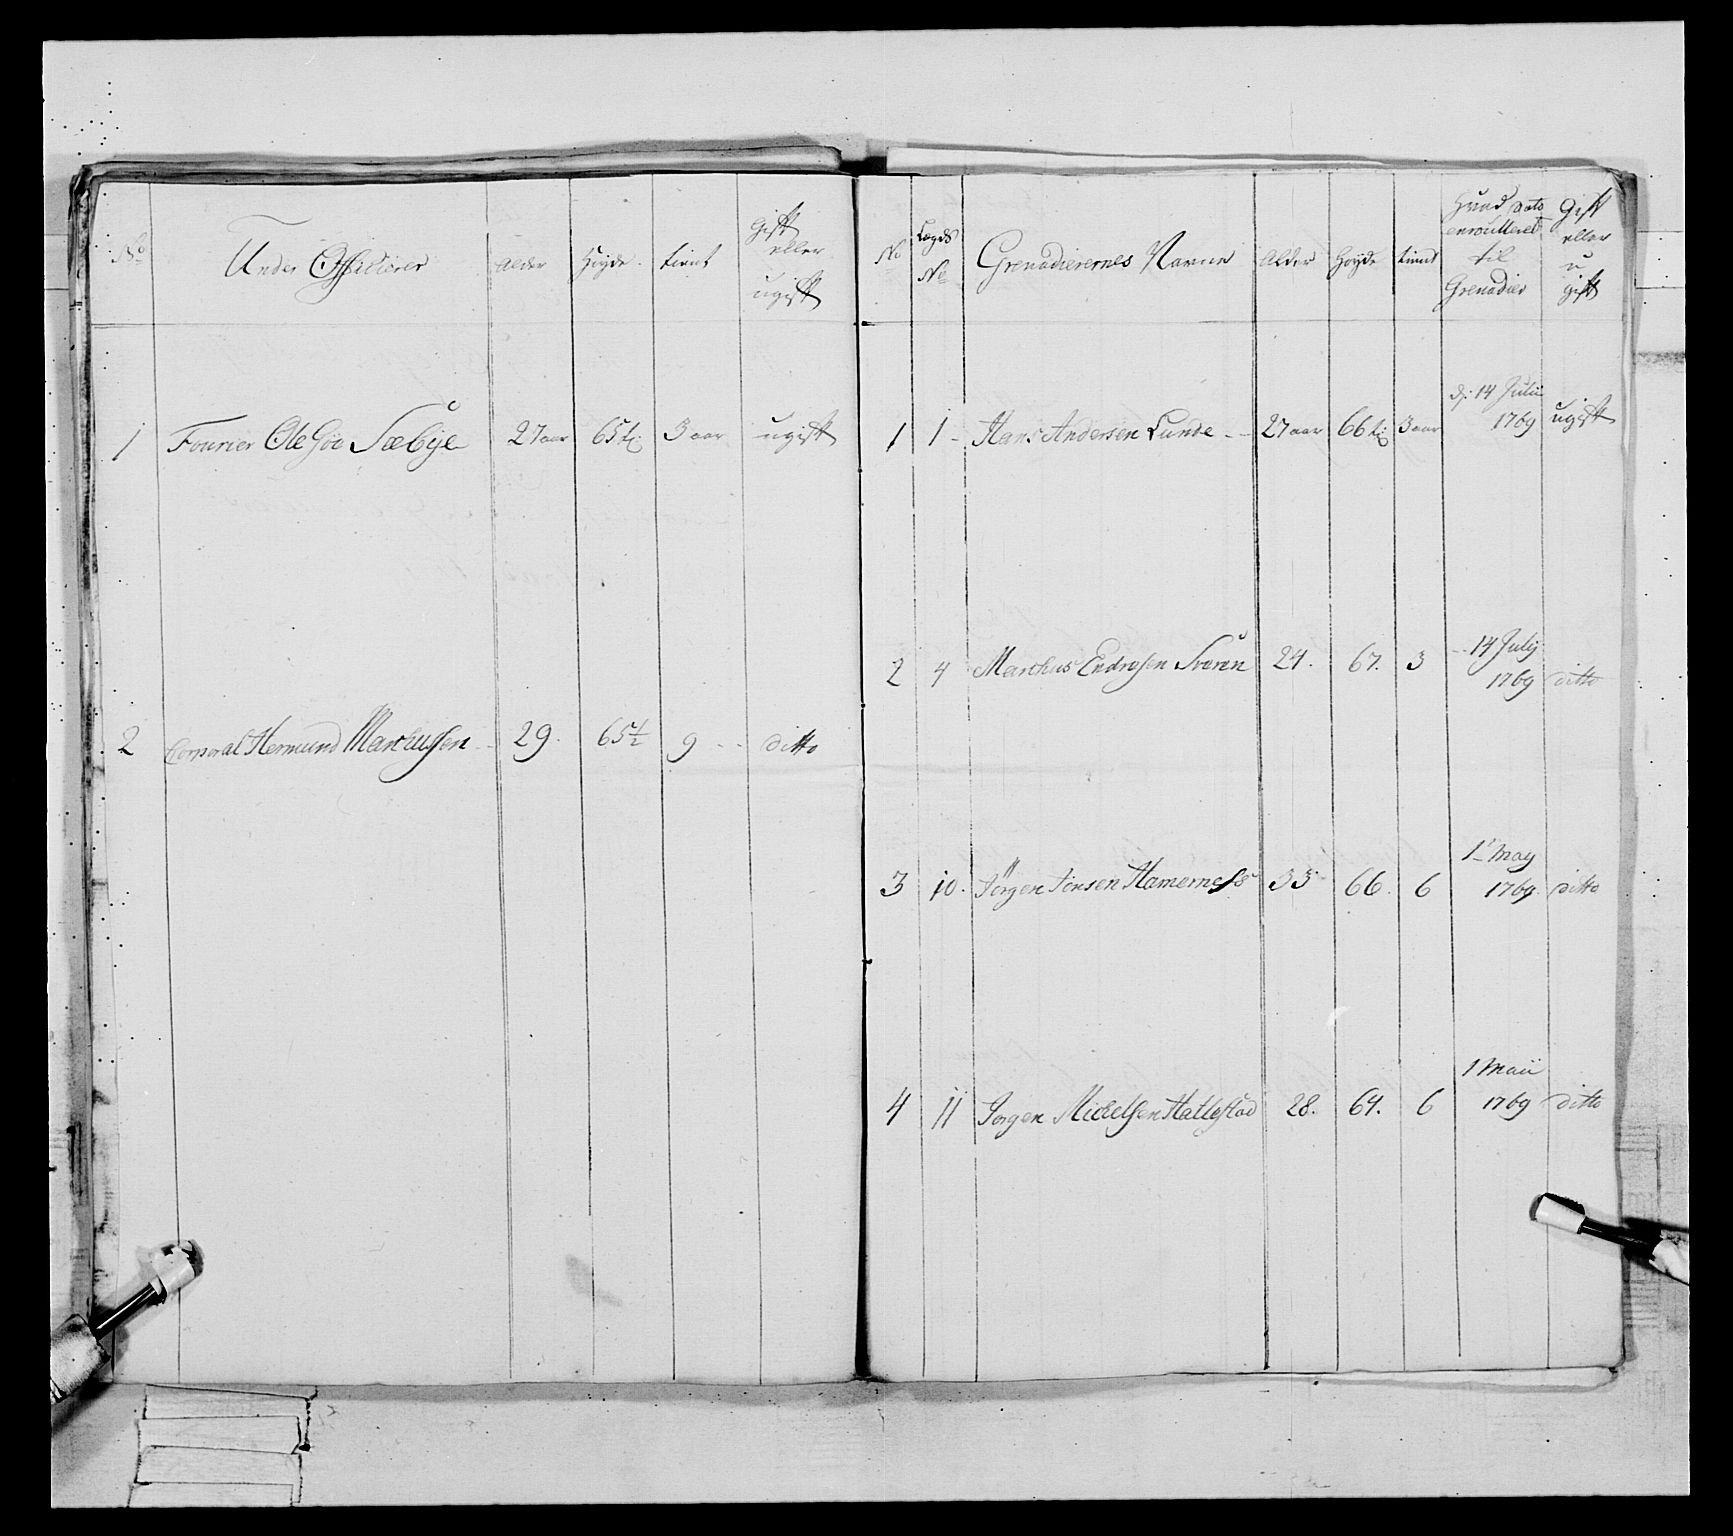 No Under Officiërer Alder Høyde tient Gift eller ugift
1 Fourier Ole Göe Sæbÿe 27 aar 65 t: 3 aar ugift
2 Corporal Hermund Marthussen 29. 65½ 9 ditto
No Lægds No Grenadierernes Navne Alder Høÿde tient Hvad Dato enroulleret til Grenadier Gift eller u gift
1 1 Hans Andersen Lunde 27 aar 66 t: 3 aar d: 14 Julii 1769 ugift
2 4 Marthus Endresen Sværen 24. 67. 3 14 Julij 1769 ditto
3 10. Jörgen Jonsen Hamerness 33 66. 6 1 May 1769. ditto
4 11 Jörgen Michelsen Hatlestad 28. 64. 6 1 Maii 1769 ditto